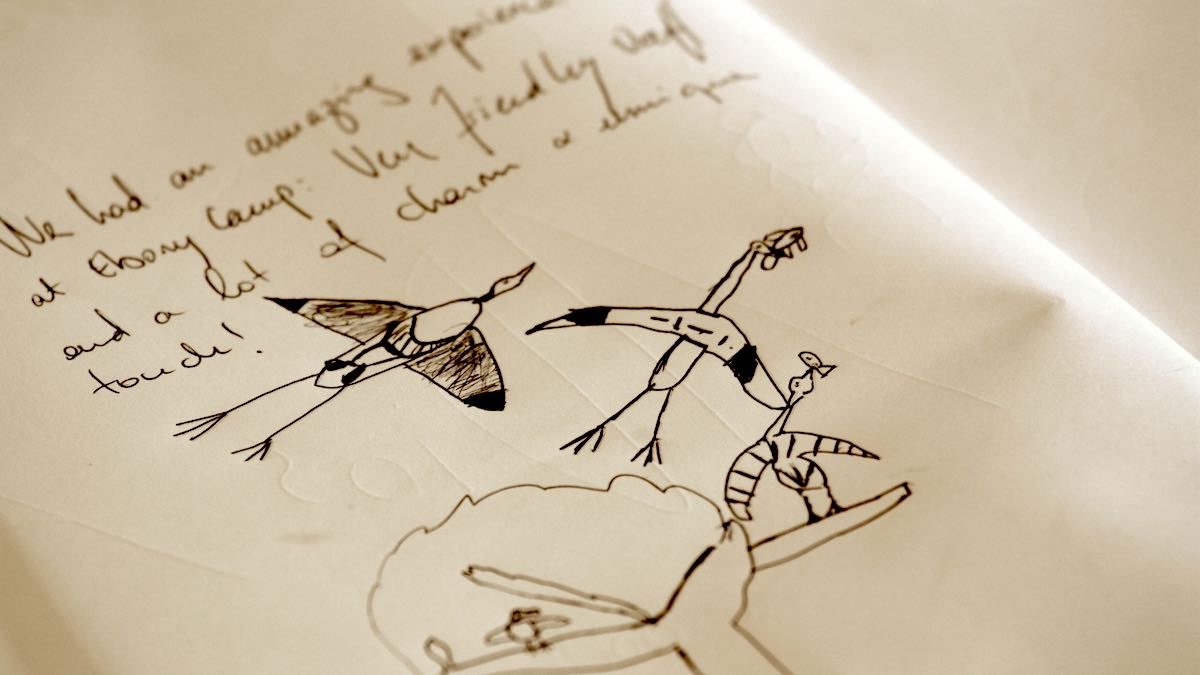 We had an amazing experience
at Ebony Camp: Very friendly staff
and a lot of charm & unique
touch!